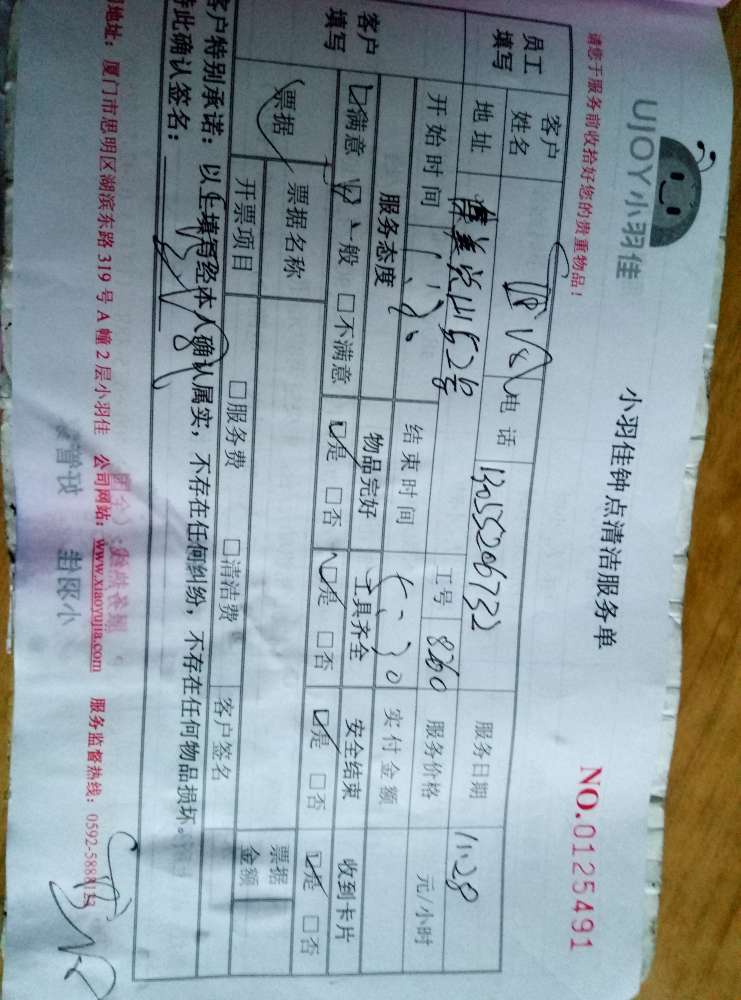 UJOY小羽佳
小羽佳钟点清洁服务单
请您于服务前收拾好您的贵重物品！
NO.0125491
员工填写 客户姓名 电话 13055206732 服务日期 11.28
地址 工号 8260 服务价格 元/小时
开始时间 结束时间 实付金额
客户填写 服务态度 物品完好 工具齐全 安全结束 收到卡片
☑满意 ☑一般 □不满意 ☑是 □否 ☑是 □否 ☑是 □否 ☑是 □否
票据 票据名称 票据金额
开票项目 □服务费 □清洁费 客户签名
客户特别承诺：以上填写经本人确认属实，不存在任何纠纷，不存在任何物品损坏。
特此确认签名：
地址：厦门市思明区湖滨东路319号A幢2层小羽佳 公司网站：www.xiaoyujia.com 服务监督热线：0592-5888123